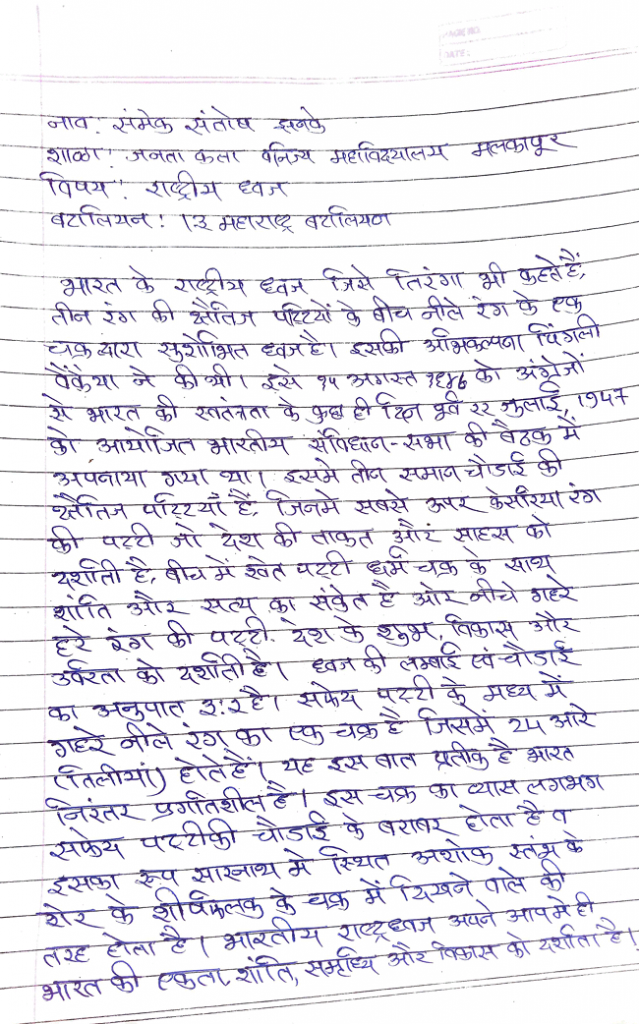 PAGE NO.
DATE:
नाव: संमेक संतोष इनके
शाळा: जनता कला वनिज्य महाविद्यालय मलकापूर
विषय: राष्ट्रीय ध्वज
बटालियन: 13 महाराष्ट्र बटालियन
भारत के राष्ट्रीय ध्वज जिसे तिरंगा भी कहते हैं,
तीन रंग की क्षैतिज पट्टियों के बीच नीले रंग के एक
चक्र द्वारा सुशोभित ध्वज है। इसकी अभिकल्पना पिंगली
वैंकैया ने की थी। इसे १५ अगस्त १९४७ को अंग्रेजों
से भारत की स्वतंत्रता के कुछ ही दिन पूर्व २२ जुलाई, 1947
को आयोजित भारतीय संविधान-सभा की बैठक में
अपनाया गया था। इसमे तीन समान चौडाई की
क्षैतिज पट्टियाँ हैं, जिनमे सबसे ऊपर केसरिया रंग
की पट्टी जो देश की ताकत और साहस को
दर्शाती है, बीच में श्वेत पट्टी धर्म चक्र के साथ
शांति और सत्य का संकेत है ओर नीचे गहरे
हरे रंग की पट्टी देश के शुभ, विकास और
उर्वरता को दर्शाती है। ध्वज की लम्बाई एवं चौडाई
का अनुपात ३:२ है। सफेद पट्टी के मध्य में
गहरे नीले रंग का एक चक्र है जिसमें 24 आरे
(तिलीयां) होते हैं। यह इस बात प्रतीक है भारत
निरंतर प्रगतिशील है। इस चक्र का व्यास लगभग
सफेद पट्टीकी चौडाई के बराबर होता है व
इसका रूप सारनाथ मे स्थित अशोक स्तंभ के
शेर के शीर्षफलक के चक्र में दिखने वाले की
तरह होता है। भारतीय राष्ट्रध्वज अपने आपमे ही
भारत की एकता, शांति, समृध्धि और विकास को दर्शाता है।